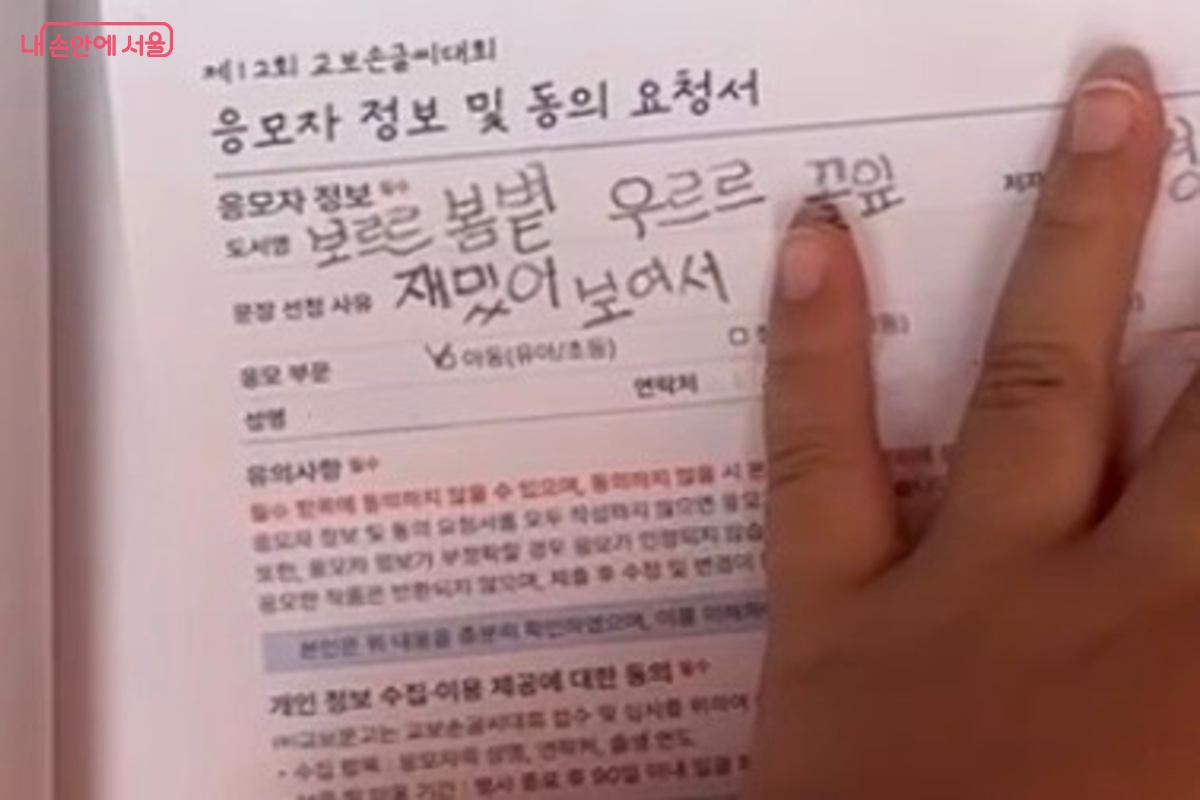 내 손안에 서울
제12회 교보손글씨대회
응모자 정보 및 동의 요청서
응모자 정보 필수
도서명 보르르 봄볕 우르르 꽃잎
문장 선정 사유 재밌어 보여서
응모 부문 아동(유아/초등)
성명 연락처
유의사항 필수
필수 항목에 동의하지 않을 수 있으며, 동의하지 않을 시
응모자 정보 및 동의 요청서를 모두 작성하지 않으면
또한, 응모자 정보가 부정확할 경우 응모가 인정되지
응모한 작품은 반환되지 않으며, 제출 후 수정 및 변경이
본인은 위 내용을 충분히 확인하였으며, 이를
개인 정보 수집·이용 제공에 대한 동의 필수
㈜교보문고는 교보손글씨대회 접수 및 심사를 위하여
• 수집 항목 : 응모자의 성명, 연락처, 출생 연도
기간 : 행사 종료 후 90일 이내